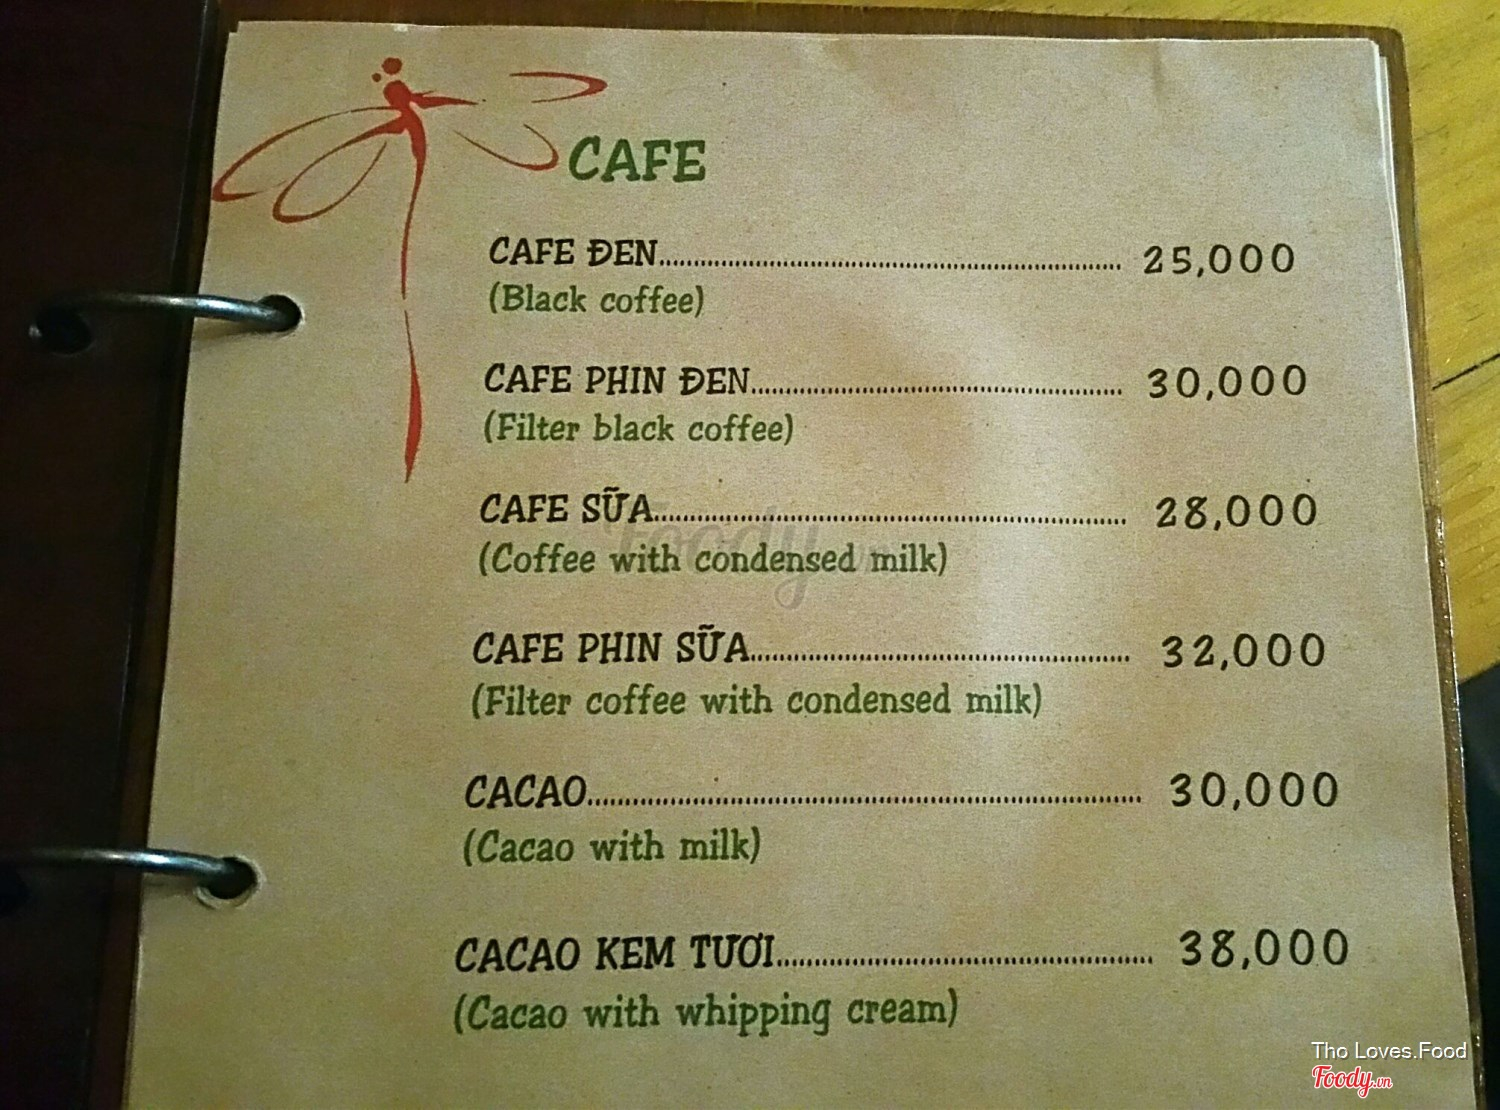 CAFE
CAFE ĐEN 25,000
(Black coffee)
CAFE PHIN ĐEN 30,000
(Filter black coffee)
CAFE SỮA 28,000
(Coffee with condensed milk)
CAFE PHIN SỮA 32,000
(Filter coffee with condensed milk)
CACAO 30,000
(Cacao with milk)
CACAO KEM TƯƠI 38,000
(Cacao with whipping cream)
Foody
Tho Loves.Food
Foody.vn